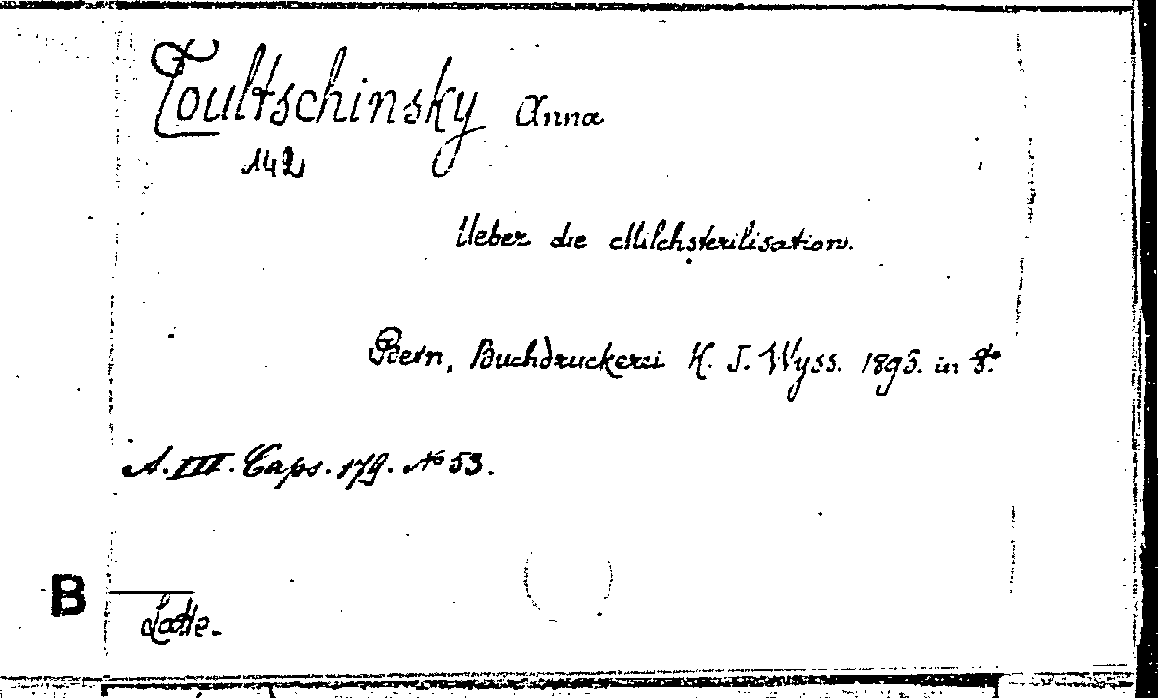 Toultschinsky Anna
142
Ueber die Milchsterilisation.
Bern, Buchdruckerei K. J. Wyss. 1895. in 8º.
A. III. Caps. 179. Nº 53.
B
Latte.